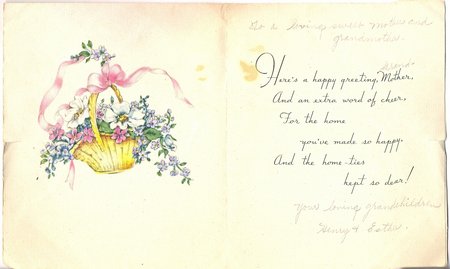 To a loving sweet mother and
grandmother.
Grand-
Here's a happy greeting, Mother,
And an extra word of cheer,
For the home
you've made so happy
And the home-ties
kept so dear!
Your loving grandchildren
Henry & Esther.